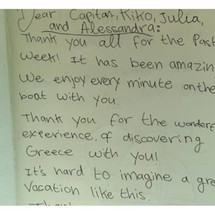 Dear Capitan, Kiko, Julia,
and Alessandra:
Thank you all for the Past
Week! It has been amazin
We enjoy every minute on the
boat with you.
Thank you for the wondere
experience of discovering
Greece with you!
It's hard to imagine a gre
Vacation like this.